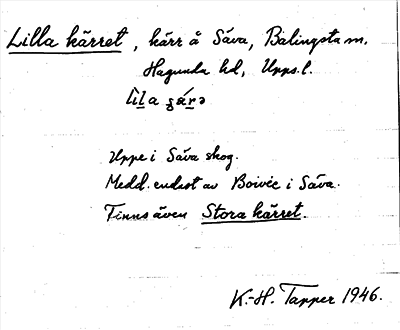 Lilla kärret, kärr å Säva, Balingsta sn.
Hagunda hd, Upps. l.
Uppe i Säva skog.
Medd. endast av i Säva.
Finns även Stora kärret.
K.-H. Tapper 1946.